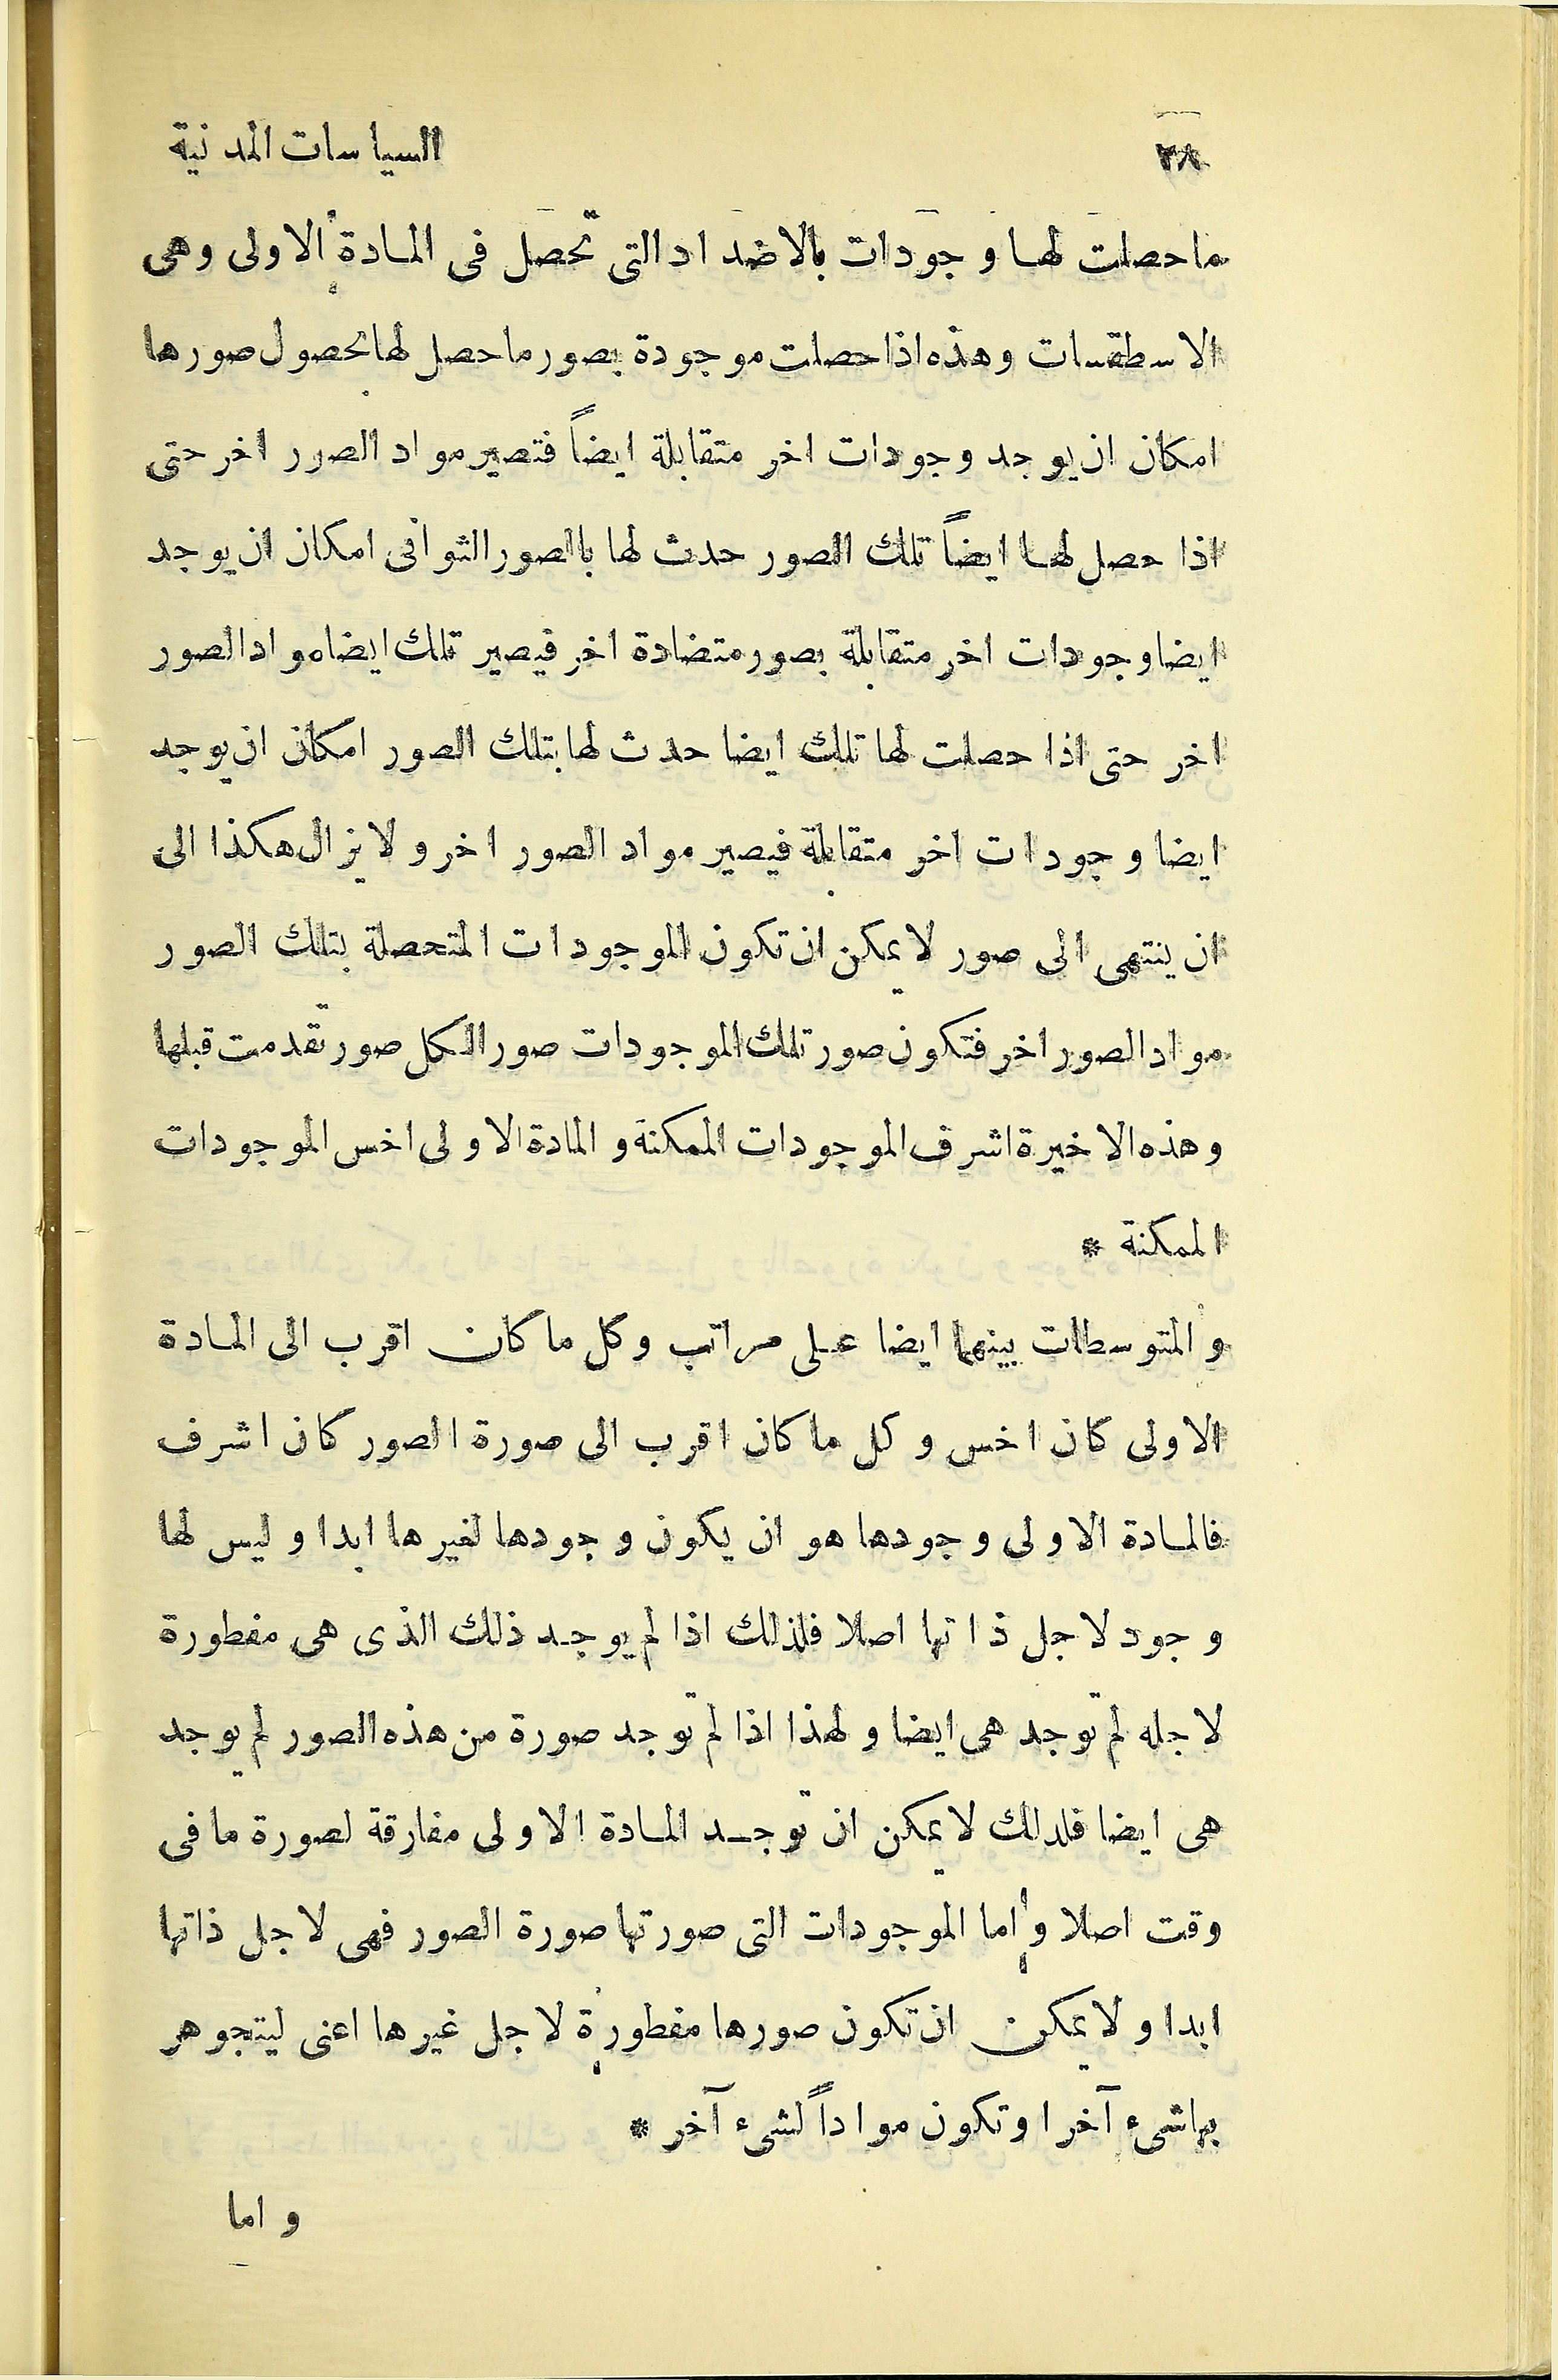 ٢٨ السياسات المدنية
ما حصلت لها وجودات بالاضداد التى تحصل فى المادة الاولى وهى
الاسطقسات وهذه اذا حصلت موجودة بصور ما حصل لها بحصول صورها
امكان ان يوجد وجودات اخر متقابلة ايضاً فتصير مواد الصور اخر حتى
اذا حصل لها ايضاً تلك الصور حدث لها بالصور الثوانى امكان ان يوجد
ايضا وجودات اخر متقابلة بصور متضادة اخر فيصير تلك ايضا مواد الصور
اخر حتى اذا حصلت لها تلك ايضا حدث لها بتلك الصور امكان ان يوجد
ايضا وجودات اخر متقابلة فيصير مواد الصور اخر ولا يزال هكذا الى
ان ينتهى الى صور لا يمكن ان تكون الموجودات المتحصلة بتلك الصور
مواد الصور اخر فتكون صور تلك الموجودات صور الكل صور تقدمت قبلها
وهذه الاخيرة اشرف الموجودات الممكنة و المادة الاولى اخس الموجودات
الممكنة *
و المتوسطات بينهما ايضا على مراتب وكل ما كان اقرب الى المادة
الاولى كان اخس وكل ما كان اقرب الى صورة الصور كان اشرف
فالمادة الاولى وجودها هو ان يكون وجودها لغيرها ابدا وليس لها
وجود لاجل ذاتها اصلا فلذلك اذا لم يوجد ذلك الذى هى مفطورة
لاجله لم توجد هى ايضا ولهذا اذا لم توجد صورة من هذه الصور لم يوجد
هى ايضا فلدلك لا يمكن ان توجد المادة الاولى مفارقة لصورة ما فى
وقت اصلا واما الموجودات التى صورتها صورة الصور فهى لاجل ذاتها
ابدا ولا يمكن ان تكون صورها مفطورة لاجل غيرها اعنى ليتجوهر
بها شىء آخر او تكون مواداً لشىء آخر *
و اما